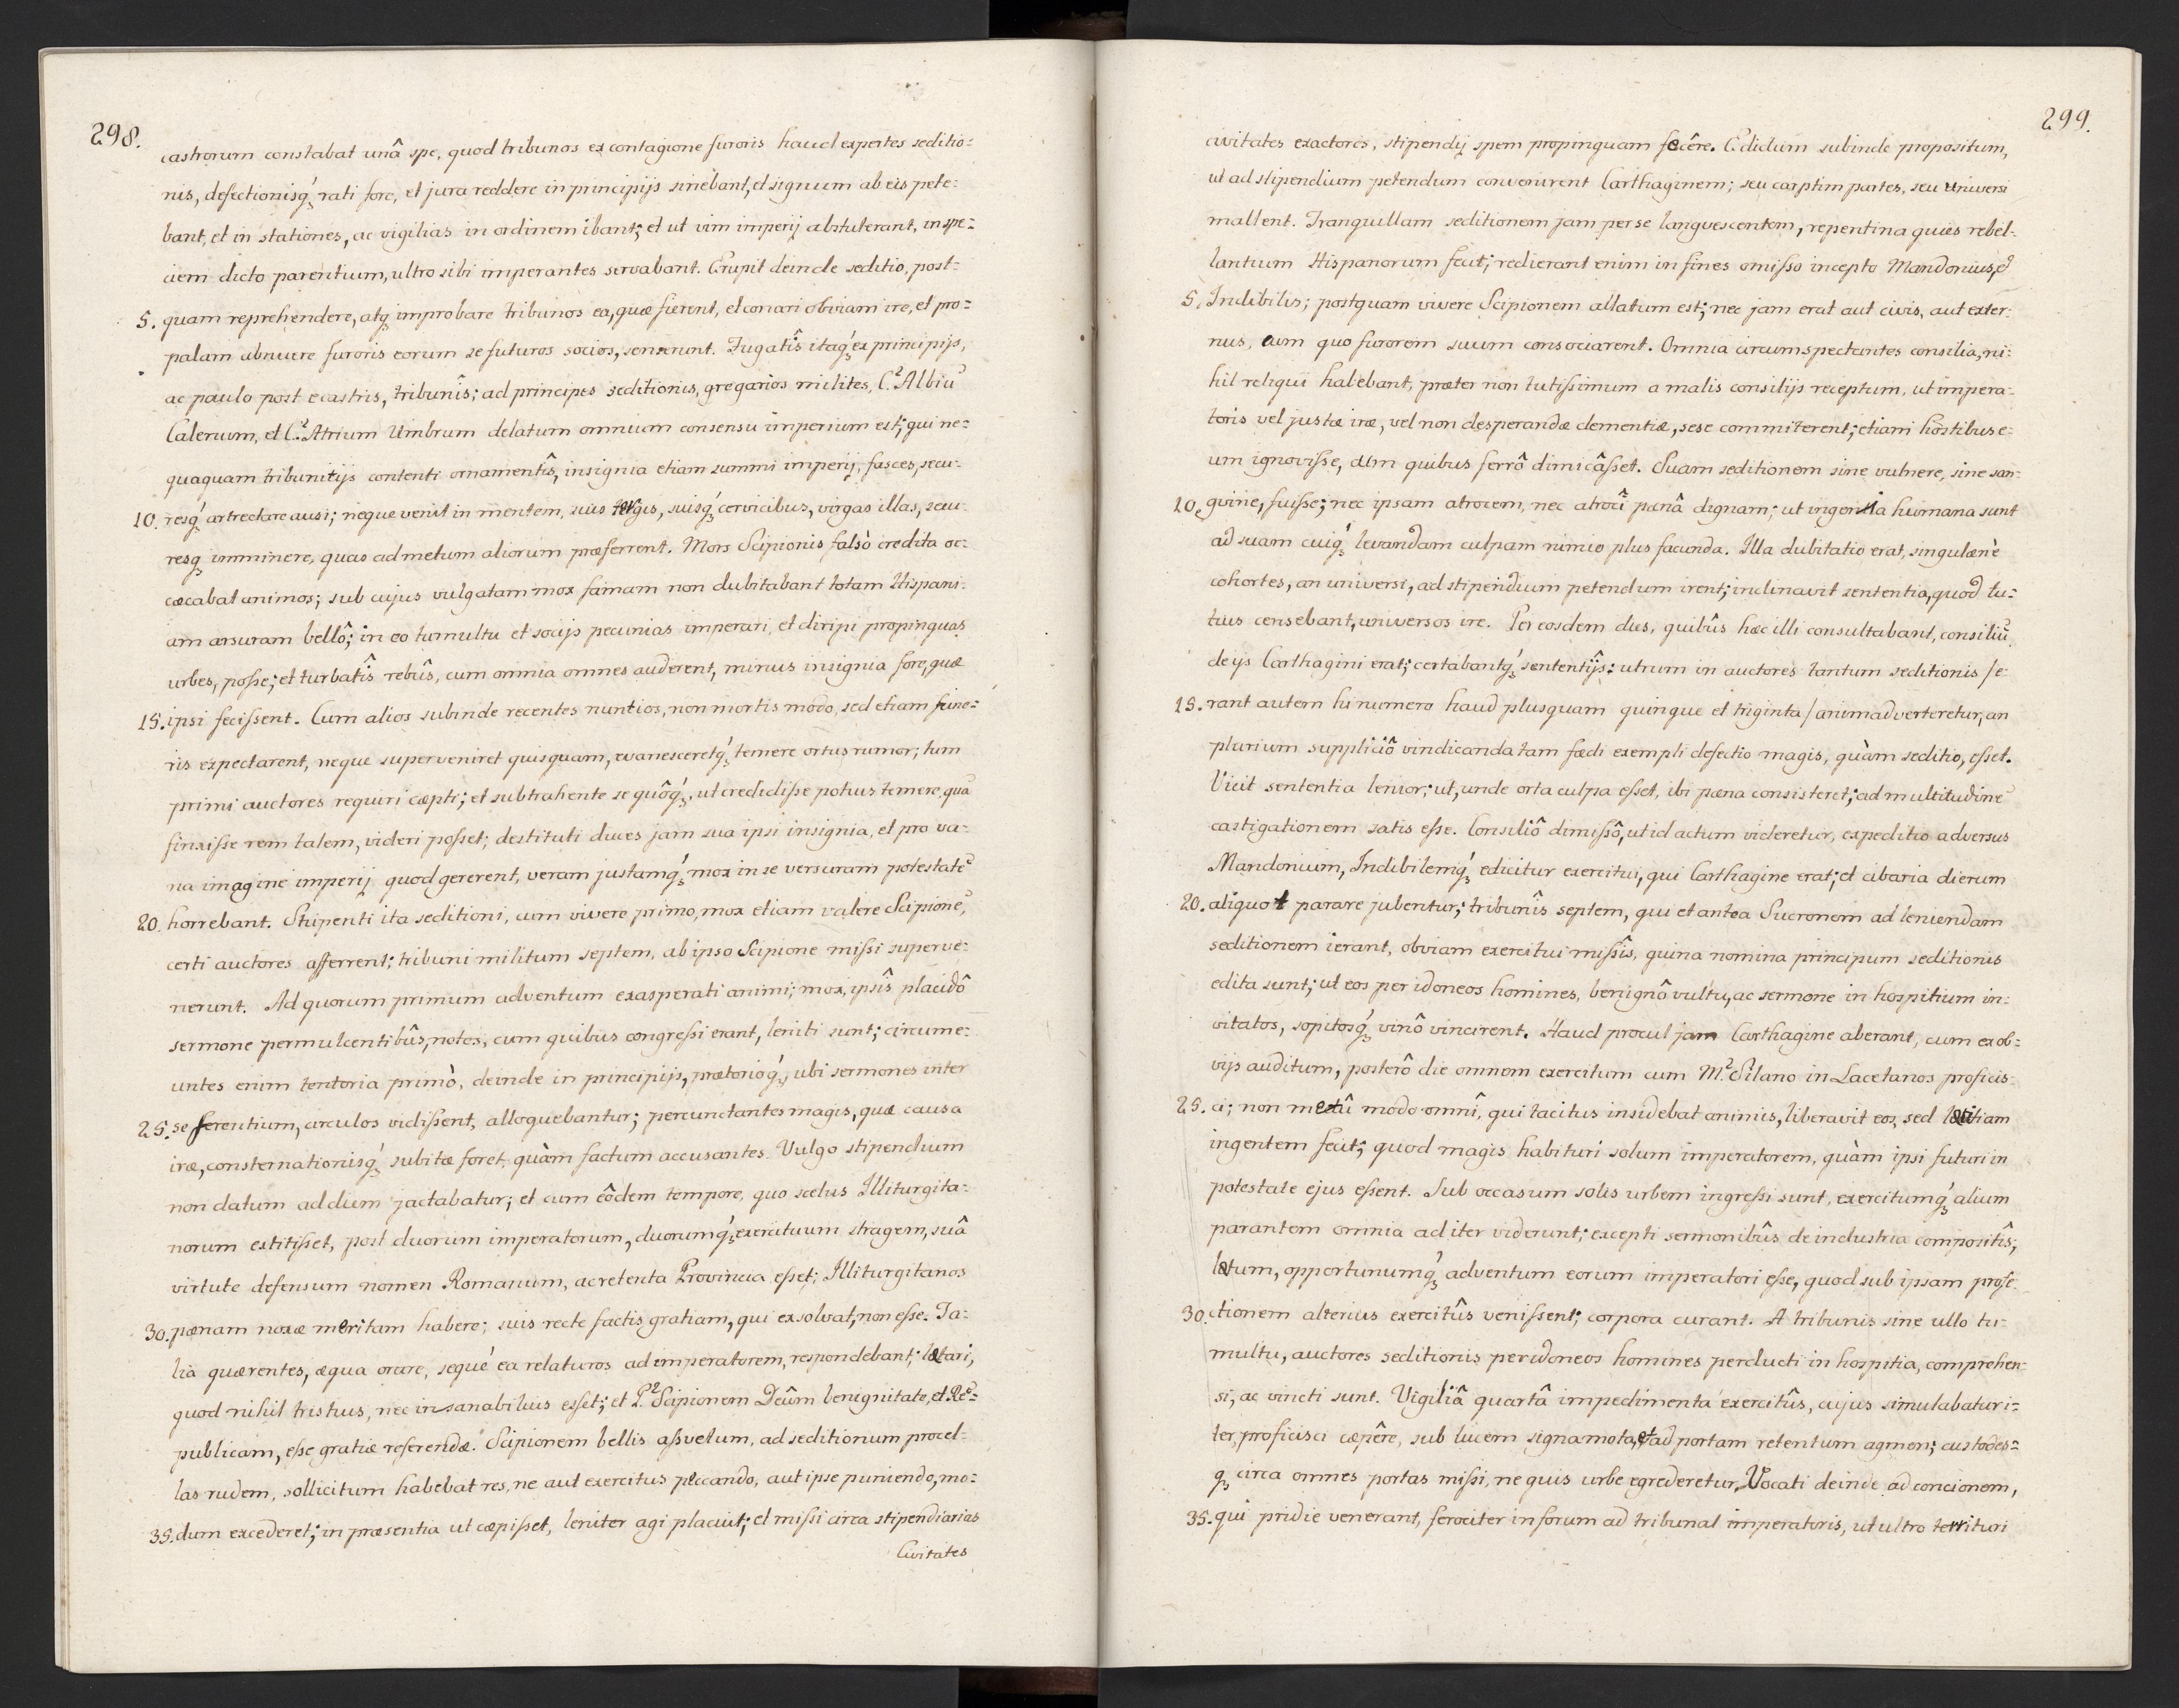 298.
castrorum constabat unâ spe, quod tribunos ex contagione furoris haud expertes seditio=
nis, defectionisq́ꝫ rati fore, et jura reddere in principijs sinebant, et signum ab eis pete=
bant, et in stationes, ac vigilias in ordinem ibant; et ut vim imperij abstulerant, in spe=
ciem dicto parentium, ultro sibi imperantes servabant. Erupit deinde seditio, post=
5. quam reprehendere, atqꝫ improbare tribunos ea, quæ fierent, et conari obviam ire, et pro=
palam abnuere furoris eorum se futuros socios, senserunt. Fugatîs itaq́ꝫ ex principijs,
ac paulo post e castris, tribunîs; ad principes seditionis, gregarios milites, C.² Albiū
Calenum, et C.² Atrium Umbrum delatum omnium consensu imperium est; qui ne=
quaquam tribunitijs contenti ornamentîs, insignia etiam summi imperij, fasces, secu=
10. resq́ꝫ attrectare ausi; neque venit in mentem, suis tergis, suisq́ꝫ cervicibus, virgas illas, secu=
resqꝫ imminere, quas ad metum aliorum præferrent. Mors Scipionis falsò credita oc=
cæcabat animos; sub cujus vulgatam mox famam non dubitabant totam Hispani=
am arsuram bellô; in eo tumultu et socijs pecunias imperari, et diripi propinquas
urbes, posse; et turbatîs rebûs, cum omnia omnes auderent, minus insignia fore, quæ
15. ipsi fecissent. Cum alios subinde recentes nuntios, non mortis modo, sed etiam fune=
ris expectarent, neque superveniret quisquam, evanesceretq́ꝫ temere ortus rumor; tum
primi auctores requiri cæpti; et subtrahente se quôq́ꝫ, ut credidisse potius temere, quā
finxisse rem talem, videri posset; destituti duces jam sua ipsi insignia, et pro va=
na imagine imperij quod gererent, veram justamq́ꝫ mox in se versuram potestatē
20. horrebant. Stupenti ita seditioni, cum vivere primo, mox etiam valere Scipionē,
certi auctores afferrent; tribuni militum septem, ab ipso Scipione missi superve=
nerunt. Ad quorum primum adventum exasperati animi; mox, ipsîs placidô
sermone permulcentibûs, notos, cum quibus congressi erant, leniti sunt; circume=
untes enim tentoria primò, deinde in principijs, prætorioq́ꝫ, ubi sermones inter
25. se serentium, circulos vidissent, alloquebantur; percunctantes magis, quæ causa
iræ, consternationisq́ꝫ subitæ foret, quàm factum accusantes. Vulgo stipendium
non datum ad diem jactabatur; et cum eôdem tempore, quo scelus Illiturgita=
norum extitisset, post duorum imperatorum, duorumq́ꝫ exercituum stragem, suâ
virtute defensum nomen Romanum, ac retenta Provincia esset; Illiturgitanos
30. pænam noxæ meritam habere; suis recte factis gratiam, qui exsolvat, non esse. Ta=
lia quærentes, æqua orare, seque ea relaturos ad imperatorem, respondebant; lætari,
quod nihil tristius, nec insanabilius esset; et P.² Scipionem Deûm benignitate, et Re=
publicam, esse gratiæ referendæ. Scipionem bellis assvetum, ad seditionum procel=
las rudem, sollicitum habebat res, ne aut exercitus peccando, aut ipse puniendo, mo=
35. dum excederet; in præsentia ut cæpisset, leniter agi placuit; et missi circa stipendiarias
Civitates
299.
civitates exactores, stipendij spem propinquam fecêre. Edictum subinde propositum,
ut ad stipendium petendum convenirent Carthaginem; seu carptim partes, seu universi
mallent. Tranquillam seditionem jam per se langvescentem, repentina quies rebel=
lantium Hispanorum fecit; redierant enim in fines omisso incepto Mandonius, et
5. Indibilis; postquam vivere Scipionem allatum est; nec jam erat aut civis, aut exter=
nus, cum quo furorem suum consociarent. Omnia circumspectantes consilia, ni=
hil reliqui habebant, præter non tutissimum a malis consilijs receptum, ut impera=
toris vel justæ iræ, vel non desperandæ clementiæ, sese committerent; etiam hostibus e=
um ignovisse, cum quibus ferrô dimicâsset. Suam seditionem sine vulnere, sine san=
10. gvine, fuisse; nec ipsam atrocem, nec atrocî pænâ dignam; ut ingenia humana sunt
ad suam cuiq́ꝫ levandam culpam nimio plus facunda. Illa dubitatio erat, singulæne
cohortes, an universi, ad stipendium petendum irent; inclinavit sententia, quod tu=
tius censebant, universos ire. Per eosdem dies, quibûs hæc illi consultabant, consiliū
de ijs Carthagini erat; certabantq́ꝫ sententîjs: utrum in auctores tantum seditionis /e=
15. rant autem hi numero haud plusquam quinque et triginta/ animadverteretur, an
plurium suppliciô vindicanda tam fædi exempli defectio magis, quàm seditio, esset.
Vicit sententia lenior; ut, unde orta culpa esset, ibi pæna consisteret; ad multitudinē
castigationem satis esse. Consiliô dimissô, ut id actum videretur, expeditio adversus
Mandonium, Indibilemq́ꝫ edicitur exercitui, qui Carthagine erat; et cibaria dierum
20. aliquot parare jubentur; tribunîs septem, qui et antea Sucronem ad leniendam
seditionem ierant, obviam exercitui missîs, quina nomina principum seditionis
edita sunt; ut eos per idoneos homines, benignô vultu, ac sermone in hospitium in=
vitatos, sopitosq́ꝫ vinô vincirent. Haud procul jam Carthagine aberant, cum ex ob=
vijs auditum, posterô die omnem exercitum cum M.² Silano in Lacetanos proficis=
25. ci; non metû modo omnî, qui tacitus insidebat animis, liberavit eos, sed lætitiam
ingentem fecit; quod magis habituri solum imperatorem, quàm ipsi futuri in
potestate ejus essent. Sub occasum solis urbem ingressi sunt, exercitumq́ꝫ alium
parantem omnia ad iter viderunt; excepti sermonibûs de industria compositîs;
lætum, opportunumq́ꝫ adventum eorum imperatori esse, quod sub ipsam profe=
30. ctionem alterius exercitûs venissent; corpora curant. A tribunis sine ullo tu=
multu, auctores seditionis per idoneos homines perducti in hospitia, comprehen=
si, ac vincti sunt. Vigiliâ quartâ impedimenta exercitûs, cujus simulabatur i=
ter, proficisci cæpêre, sub lucem signa mota, et ad portam retentum agmen; custodes=
qꝫ circa omnes portas missi, ne quis urbe egrederetur. Vocati deinde ad concionem,
35. qui pridie venerant, ferociter in forum ad tribunal imperatoris, ut ultro territuri